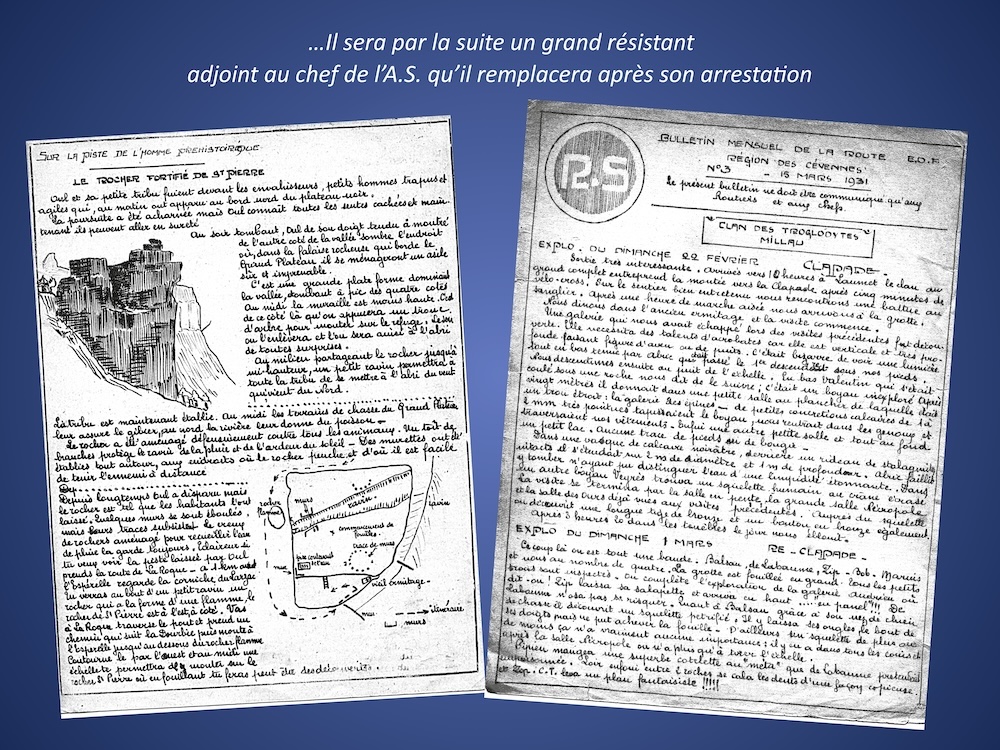 ...Il sera par la suite un grand résistant
adjoint au chef de l'A.S. qu'il remplacera après son arrestation
SUR LA PISTE DE L'HOMME PREHISTORIQUE
LE ROCHER FORTIFIÉ DE St PIERRE
Oul et sa petite tribu fuient devant les envahisseurs, petits hommes trapus et
agiles qui, au matin ont apparu au bord nord du plateau noir.
La poursuite a été acharnée mais Oul connait toutes les sentes cachées et main-
tenant ils peuvent aller en sureté
Au soir tombant, Oul de son doigt tendu a montré
de l'autre coté de la vallée sombre l'endroit
où, dans la falaise rocheuse qui borde le
Grand Plateau il se ménageront un asile
sûr et imprenable.
C'est une grande plate forme dominant
la vallée, tombant à pic des quatre cotés
Au midi la muraille est moins haute. C'est
de ce côté là qu'on appuera un tronc
d'arbre pour monter sur le refuge. Le soir
on l'enlevera et l'on sera ainsi à l'abri
de toutes surprises.
Au milieu partageant le rocher jusqu'à
mi-hauteur, un petit ravin permettra à
toute la tribu de se mettre à l'abri du vent
qui vient du Nord.
La tribu est maintenant établie. Au midi les terrains de chasse du Grand Plateau
leur assure le gibier, au nord la rivière leur donne du poisson -
Le rocher a été aménagé défensivement contre tous les animaux. Un toit de
branches protège le ravin de la pluie et de l'ardeur du soleil - Des murettes ont été
établies tout autour, aux endroits où le rocher penche et d'où il est facile
de tenir l'ennemi à distance
Depuis longtemps Oul a disparu mais
le rocher est tel que les habitants l'ont
laissé. Quelques murs se sont éboulés
mais leurs traces subsistent le creux
de rochers aménagé pour recueillir l'eau
de pluie la garde toujours. Eclaireur si
tu veux voir la piste laissée par Oul
prends la route de La Roque - à 1 km avant
l'Esperelle regarde la corniche du Larzac
Tu verras au bout d'un petit ravin un
rocher qui a la forme d'une flamme, le
rocher de St Pierre est à l'est, à coté. Vas
à La Roque traverse le pont et prend un
chemin qui suit la Dourbie puis monte à
l'Esperelle jusqu'au dessous du rocher flamme
Contourne le par l'ouest et au midi une
échelle te permettra d'y monter sur le
rocher St Pierre où en fouillant tu feras peut être des découvertes.
murs
ravin
commencement de
fouilles.
trace de murs
mur
mur
vrai ermitage -
itinéraire
murs
R.S
BULLETIN MENSUEL DE LA ROUTE E.D.F
RÉGION DES CÉVENNES
N°3 - 15 MARS 1931
Le présent bulletin ne doit être communiqué qu'aux
Routiers et aux chefs.
CLAN DES TROGLODYTES
MILLAU
EXPLO. DU DIMANCHE 22 FEVRIER CLAPADE -
Sortie très interessante. Arrivés vers 10 heures à Laumet le clan au
grand complet entreprend la montée vers la Clapade, après cinq minutes de
vélo-cross. Sur le sentier bien entretenu nous rencontrons une battue au
sanglier. Après une heure de marche aisée nous arrivons à la grotte.
Nous dinons dans l'ancien ermitage et la visite commence.
Une galerie qui nous avait échappé lors des visites précédentes fut décou-
verte. Elle necessita des talents d'acrobates car elle est verticale et très pro-
fonde faisant figure d'aven ou de puits. C'était bizarre de voir une lumière
Nous descendimes ensuite au puit de l'échelle. En bas Valentin qui s'était
coulé sous une roche nous dit de le suivre; c'était un boyau inexploré Après
vingt mètres il donnait dans une petite salle au plancher de laquelle était
un trou étroit: la galerie des épines - de petites concretions calcaires de 1 à
2 mm très pointues tapissaient le boyau, nous rentrant dans les genoux et
traversaient nos vêtements. Enfin une autre petite salle et tout au fond
un petit lac. Aucune trace de pieds ou de bougie -
Dans une vasque de calcaire noirâtre, derrière un rideau de stalagmites
intacts il s'étendait sur 2 m de diamètre et 1 m de profondeur. Abric faillit
y tomber n'ayant pu distinguer l'eau d'une limpidité étonnante. Dans
un autre boyau Veyrès trouva un squelette humain au crâne écrasé
La visite se termina par la salle en pente, la grande salle Nécropole
et la salle des Ours déjà vues aux visites précédentes. Auprès du squelette
on découvrit une longue tige de bronze et un bouton en bronze également.
Après 3 heures 10 dans les ténèbres le jour nous éblouit.
EXPLO DU DIMANCHE 1 MARS RE - CLAPADE -
Ce coup là on est toute une bande. Balsan, de Labaume, Zip - Bob. Marcius
et nous au nombre de quatre. La grotte est fouillée en grand. Tous les petits
trous sont inspectés. On complète l'exploration de la galerie Andrieu où
dit-on! Zip laissa sa salopette et arriva en bas ..... "en panel"!!! De
Labaume n'osa pas se risquer. Quant à Balsan grâce à son nez de chien
de chasse il découvrit un squelette pétrifié. Il y laissa ses ongles, le bout de
ses doigts mais ne put achever la fouille - D'ailleurs un squelette de plus ou
de moins ça n'a vraiment aucune importance: il y en a dans tous les coins et
après la salle Nécropole on n'a plus qu'à tirer l'échelle.
Pipeu mangea une superbe cotelette au "meta" que de Labaume prétendait
empoisonnée. Noir enfoui entre 2 roches se cala les dents d'une façon copieuse
et Zip. C.T. leva un plan fantaisiste !!!!!